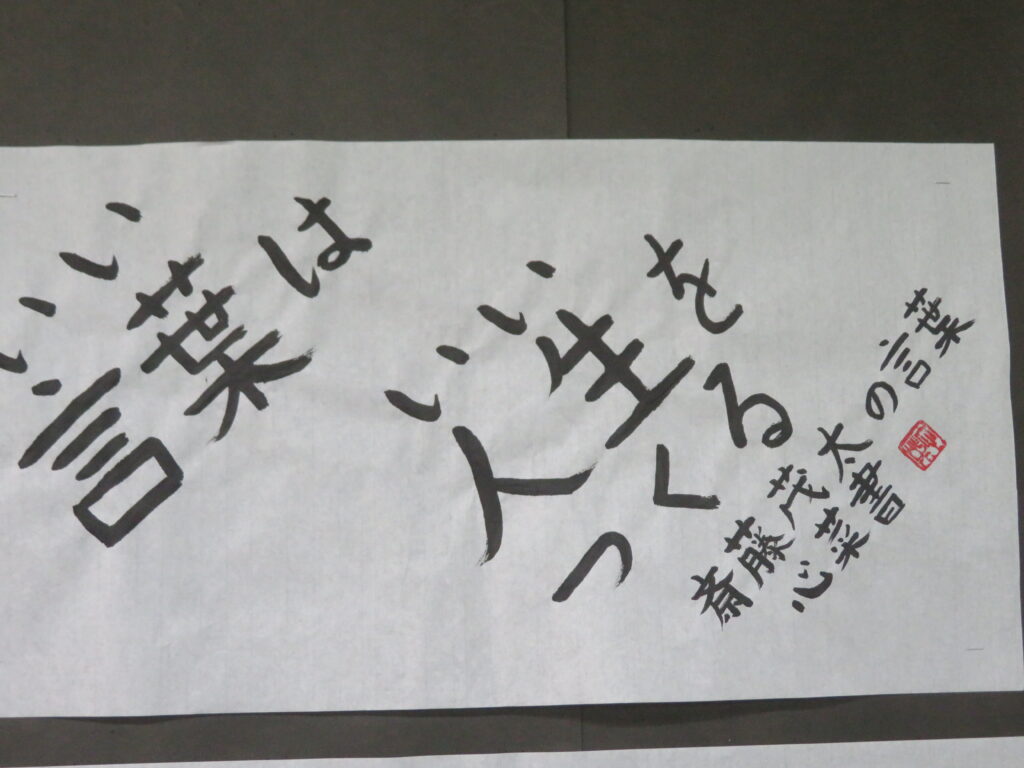 いい
言葉は
いい
人生を
つくる
斎藤茂太の言葉
心菜書